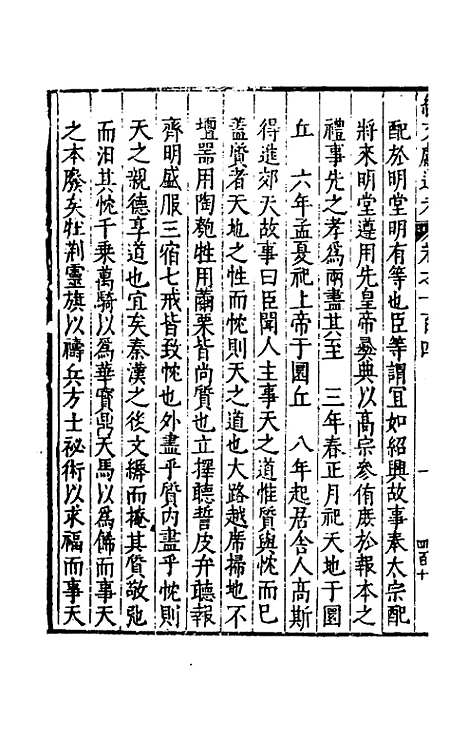 配於明堂明有等也臣等謂宜如紹興故事奉太宗配
將來明堂遵用先皇帝彝典以高宗參侑庶於報本之
禮事先之孝為兩盡其至　三年春正月祀天地于圜
丘　六年孟夏祀上帝于圜丘　八年起居舍人高斯
得進郊天故事曰臣聞人主事天之道惟質與忱而已
蓋質者天地之性而忱則天之道也大路越席掃地不
壇器用陶匏牲用繭栗皆尚質也立擇聽誓皮弁聽報
齊明盛服三宿七戒皆致忱也外盡乎質内盡乎忱則
天之親德享道也宜矣秦漢之後文縟而掩其質敬弛
而汨其忱千乗萬騎以為華寳鼎天馬以為備而事天
之本廢矣牡荆靈旗以禱兵方士祕術以求福而事天